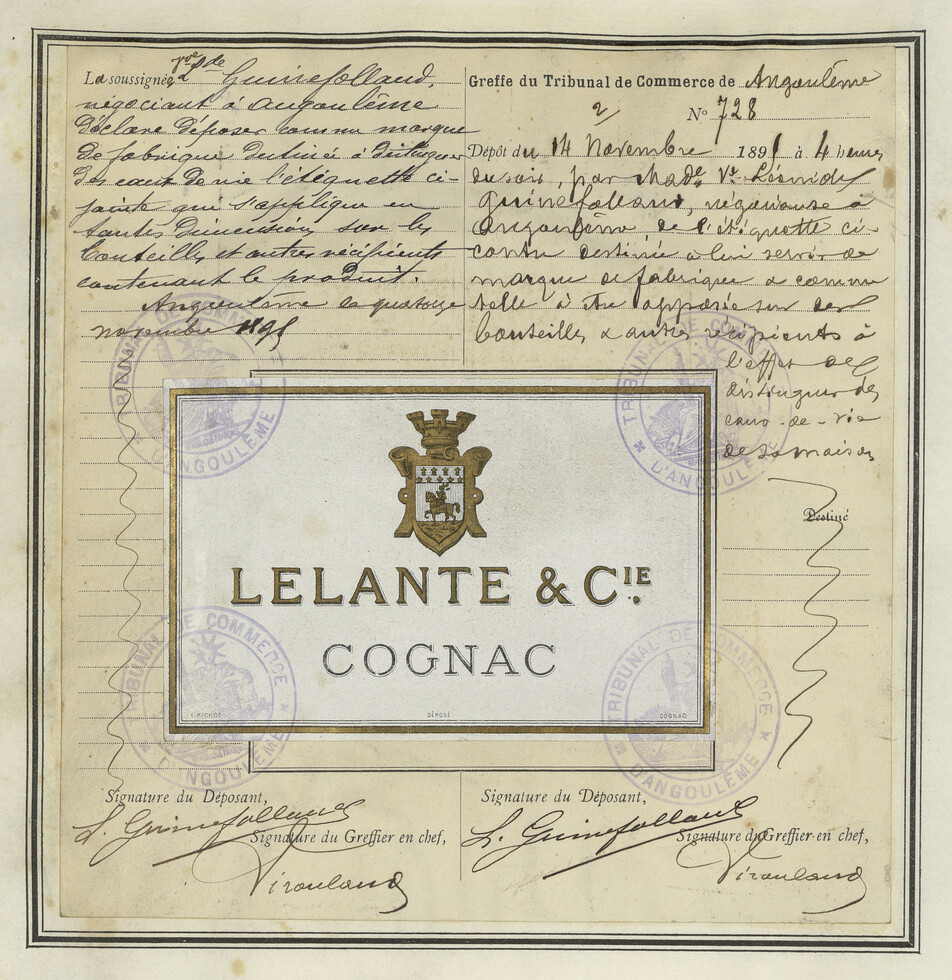 La soussignée, Vve L de Guinefolleaud,
négociant à Angoulême
déclare déposer comme marque
de fabrique destinée à distinguer
des eaux de vie l'étiquette ci-
jointe qui s'applique en
toutes dimensions sur les
bouteilles et autres récipients
contenant le produit.
Angoulême le quatorze
novembre 1891
Greffe du Tribunal de Commerce de Angoulême
No 728
Dépôt du 14 Novembre 1891 à 4 heures
du soir, par Made Ve Léonide
Guinefolleaud, négociante à
Angoulême, de l'étiquette ci-
contre destinée à lui servir de
marque de fabrique & comme
telle à être apposée sur des
bouteilles & autres récipients à
l'effet de
distinguer des
eaux-de-vie
de sa maison
Destiné
LELANTE & CIE.
COGNAC
DÉPOSÉ
COGNAC
TRIBUNAL DE COMMERCE
D'ANGOULÊME
TRIBUNAL DE COMMERCE
D'ANGOULÊME
TRIBUNAL DE COMMERCE
D'ANGOULÊME
TRIBUNAL DE COMMERCE
D'ANGOULÊME
Signature du Déposant,
L. Guinefolleaud
Signature du Greffier en chef,
Signature du Déposant,
L. Guinefolleaud
Signature du Greffier en chef,